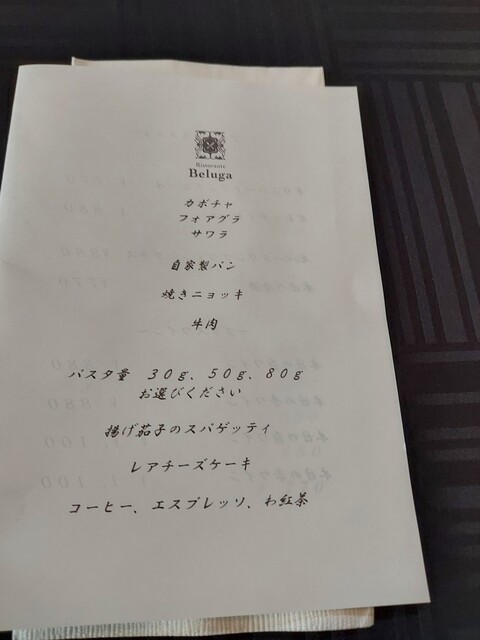 Ristorante
Beluga
カボチャ
フォアグラ
サワラ
自家製パン
焼きニョッキ
牛肉
パスタ量 30g、50g、80g
お選びください
揚げ茄子のスパゲッティ
レアチーズケーキ
コーヒー、エスプレッソ、わ紅茶